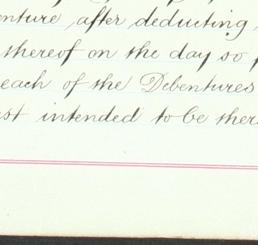 enture, after deducting
thereof on the day so
each of the Debentures
st intended to be there